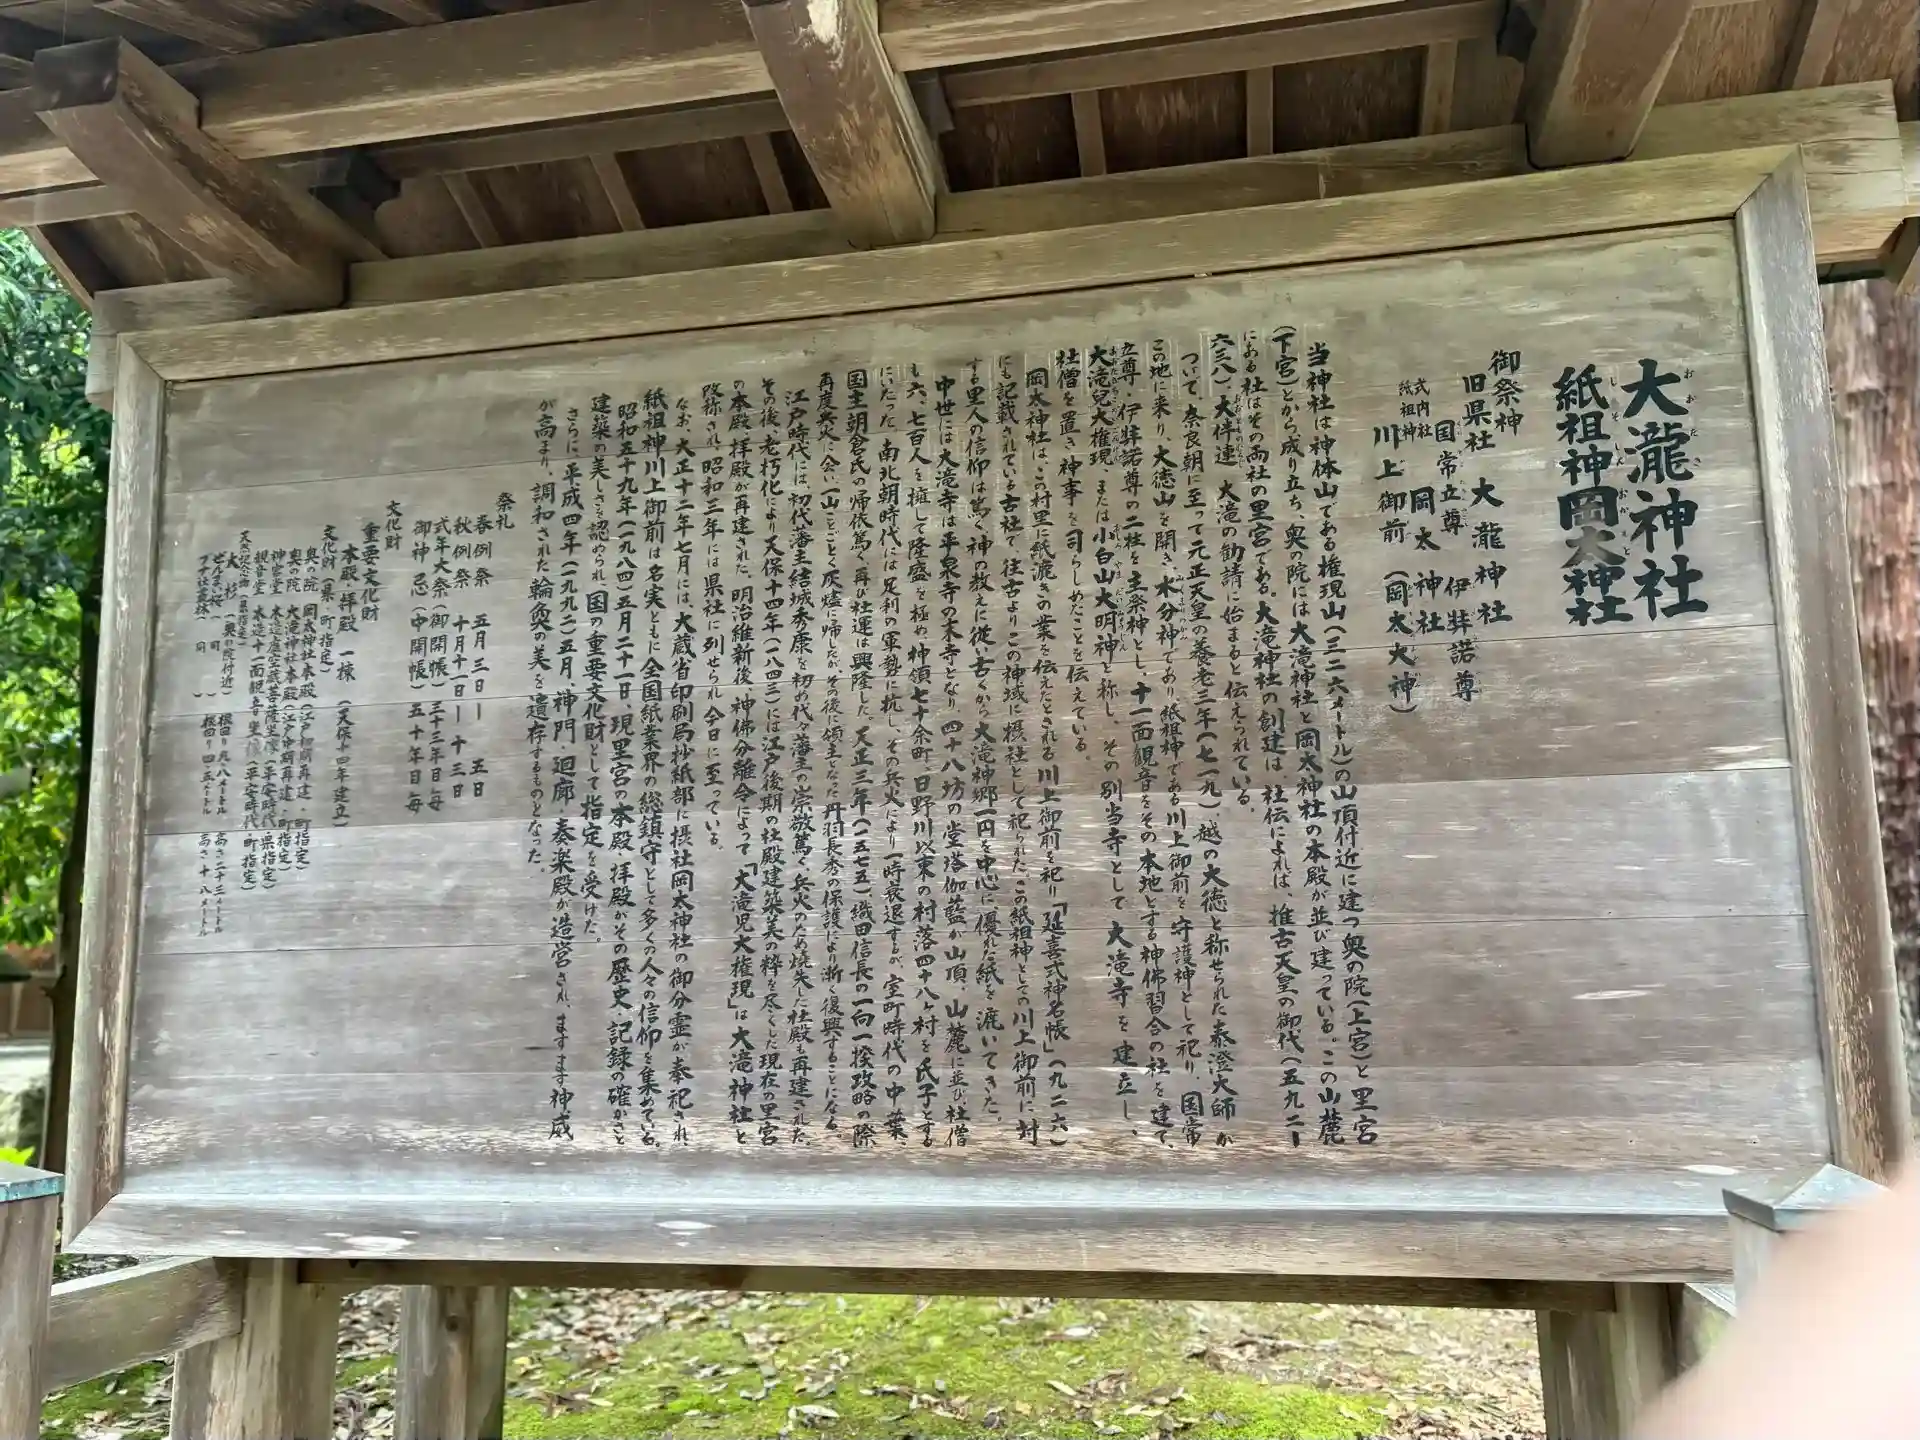 大瀧神社
紙祖神 岡太神社
御祭神
旧県社 大瀧神社
国常立尊 伊弉諾尊
式内社 紙祖神 岡太神社
川上御前（岡太大神）
当神社は神体山である権現山（三二六メートル）の山頂付近に建つ奥の院（上宮）と里宮
（下宮）とから成り立ち、奥の院には大滝神社と岡太神社の本殿が並び建っている。この山麓
にある社はその両社の里宮である。大滝神社の創建は、社伝によれば、推古天皇の御代（五九二ー
六三八）、大伴連大滝の勧請に始まると伝えられている。
ついで、奈良朝に至って元正天皇の養老三年（七一九）、越の大徳と称せられた泰澄大師が
この地に来り、大徳山を開き、水分神であり紙祖神である川上御前を守護神として祀り、国常
立尊・伊弉諾尊の二柱を主祭神とし、十一面観音をその本地とする神佛習合の社を建て、
大滝兒大権現または小白山大明神と称し、その別当寺として大滝寺を建立し、
社僧を置き神事を司らしめたことを伝えている。
岡太神社は、この村里に紙漉きの業を伝えたとされる川上御前を祀り「延喜式神名帳」（九二六）
にも記載されている古社で、往古よりこの神域に摂社として祀られた。この紙祖神としての川上御前に対
する里人の信仰は篤く神の教えに従い古くから大滝神郷一円を中心に、優れた紙を漉いてきた。
中世には大滝寺は平泉寺の末寺となり、四十八坊の堂塔伽藍が山頂、山麓に並び、社僧
も六、七百人を擁して隆盛を極め、神領七十余町、日野川以東の村落四十八ヶ村を氏子とする
にいたった。南北朝時代には足利の軍勢に抗し、その兵火により一時衰退するが、室町時代の中葉、
国主朝倉氏の帰依篤く再び社運は興隆した。天正三年（一五七五）、織田信長の一向一揆攻略の際
再度兵火に会い一山ことごとく灰燼に帰したが、その後に領主となった丹羽長秀の保護により漸く復興することになる。
江戸時代には、初代藩主結城秀康を初め代々藩主の崇敬篤く兵火のため焼失した社殿も再建された。
その後、老朽化により天保十四年（一八四三）には江戸後期の社殿建築美の粋を尽くした現在の里宮
の本殿・拝殿が再建された。明治維新後、神佛分離令によって「大滝児大権現」は大滝神社と
改称され、昭和三年には県社に列せられ今日に至っている。
なお、大正十二年七月には、大蔵省印刷局抄紙部に摂社岡太神社の御分霊が奉祀され、
紙祖神川上御前は名実ともに全国紙業界の総鎮守として多くの人々の信仰を集めている。
昭和五十九年（一九八四）五月二十一日、現里宮の本殿・拝殿がその歴史・記録の確かさと
建築の美しさを認められ、国の重要文化財として指定を受けた。
さらに、平成四年（一九九二）五月、神門・廻廊・奏楽殿が造営され、ますます神威
が高まり、調和された輪奐の美を遺存するものとなった。
祭礼
春例祭 五月三日ー五日
秋例祭 十月十一日ー十三日
式年大祭（御開帳）三十三年目毎
御神忌（中開帳）五十年目毎
文化財
重要文化財
本殿・拝殿 一棟（天保十四年建立）
文化財（県・町指定）
奥の院 岡太神社本殿（江戸初期再建・町指定）
奥の院 大滝神社本殿（江戸中期再建・町指定）
神宮堂 木造虚空蔵菩薩坐像（平安時代・県指定）
観音堂 木造十一面観音坐像（平安時代・町指定）
天然記念物（県指定）
大杉（奥の院付近） 根回り九・八メートル 高さ二十三メートル
ぜんまい桜（ 同 ） 根回り四・五メートル 高さ十八メートル
ブナ社叢林（ 同 ）